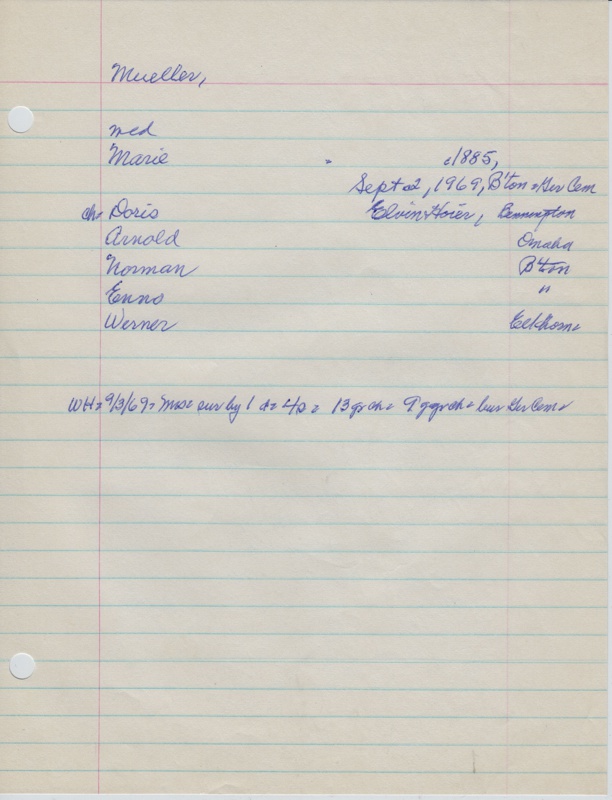 Mueller,
med
Marie - c1885,
Sept 2, 1969, B'ton - Ger Cem
ch- Doris Elvin Hoier, Bennington
Arnold Omaha
Norman B'ton
Enno "
Werner Elkhorn-
WH- 9/3/69- Mrs- sur by 1 d- 4s- 13 gr ch- 9 ggrch- bur Ger Cem-